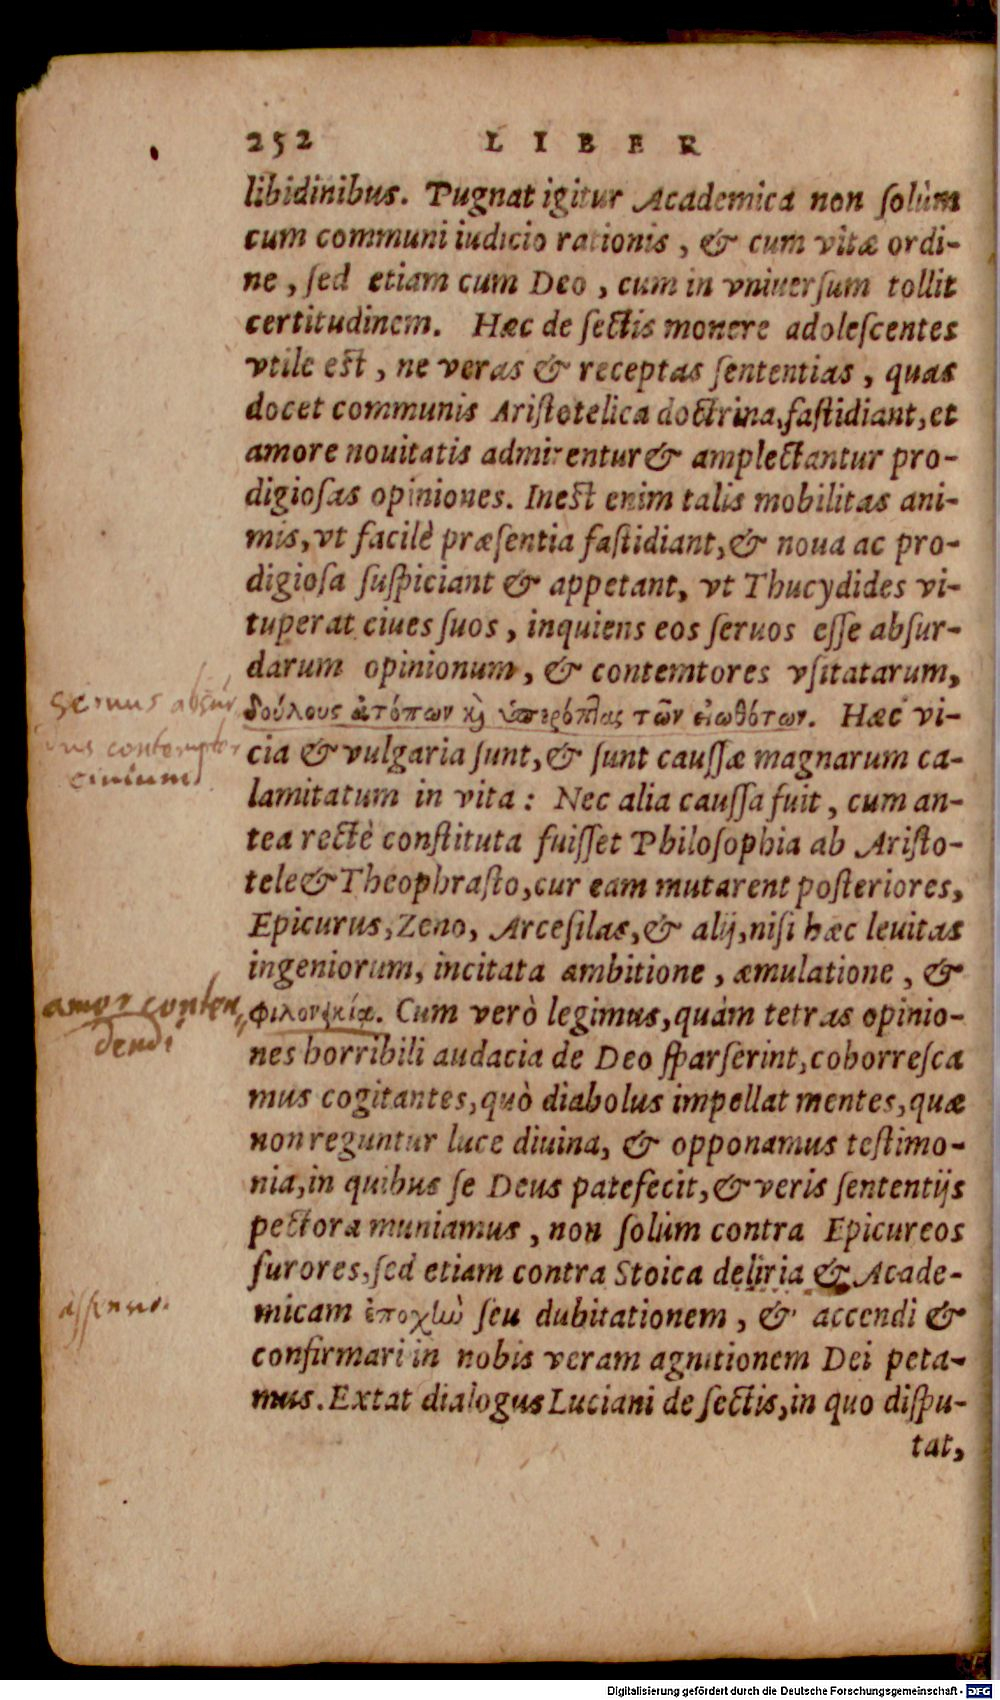 252 LIBER
libidinibus. Pugnat igitur Academica non ſolùm
cum communi iudicio rationis, & cum vitæ ordi-
ne, ſed etiam cum Deo, cum in vniuerſum tollit
certitudinem. Hæc de ſectis monere adoleſcentes
vtile eſt, ne veras & receptas ſententias, quas
docet communis Ariſtotelica doctrina, faſtidiant, et
amore nouitatis admirentur & amplectantur pro-
digioſas opiniones. Ineſt enim talis mobilitas ani-
mis, vt facilè præſentia faſtidiant, & noua ac pro-
digioſa ſuſpiciant & appetant, vt Thucydides vi-
tuperat ciues ſuos, inquiens eos ſeruos eſſe abſur-
darum opinionum, & contemtores vſitatarum,
δούλους ἀτόπων κ̀ ὑπερόπτας τῶν εἰωθότων. Hæc vi-
cia & vulgaria ſunt, & ſunt cauſſæ magnarum ca-
lamitatum in vita: Nec alia cauſſa fuit, cum an-
tea rectè conſtituta fuiſſet Philoſophia ab Ariſto-
tele & Theophraſto, cur eam mutarent poſteriores,
Epicurus, Zeno, Arceſilas, & alij, niſi hæc leuitas
ingeniorum, incitata ambitione, æmulatione, &
φιλονεικίᾳ. Cum verò legimus, quàm tetras opinio-
nes horribili audacia de Deo ſparſerint, cohorreſca
mus cogitantes, quò diabolus impellat mentes, quæ
non reguntur luce diuina, & opponamus teſtimo-
nia, in quibus ſe Deus patefecit, & veris ſententijs
pectora muniamus, non ſolùm contra Epicureos
furores, ſed etiam contra Stoica deliria & Acade-
micam ἐποχὴν ſeu dubitationem, & accendi &
confirmari in nobis veram agnitionem Dei peta-
mus. Extat dialogus Luciani de ſectis, in quo diſpu-
tat,
amor conten
dendi